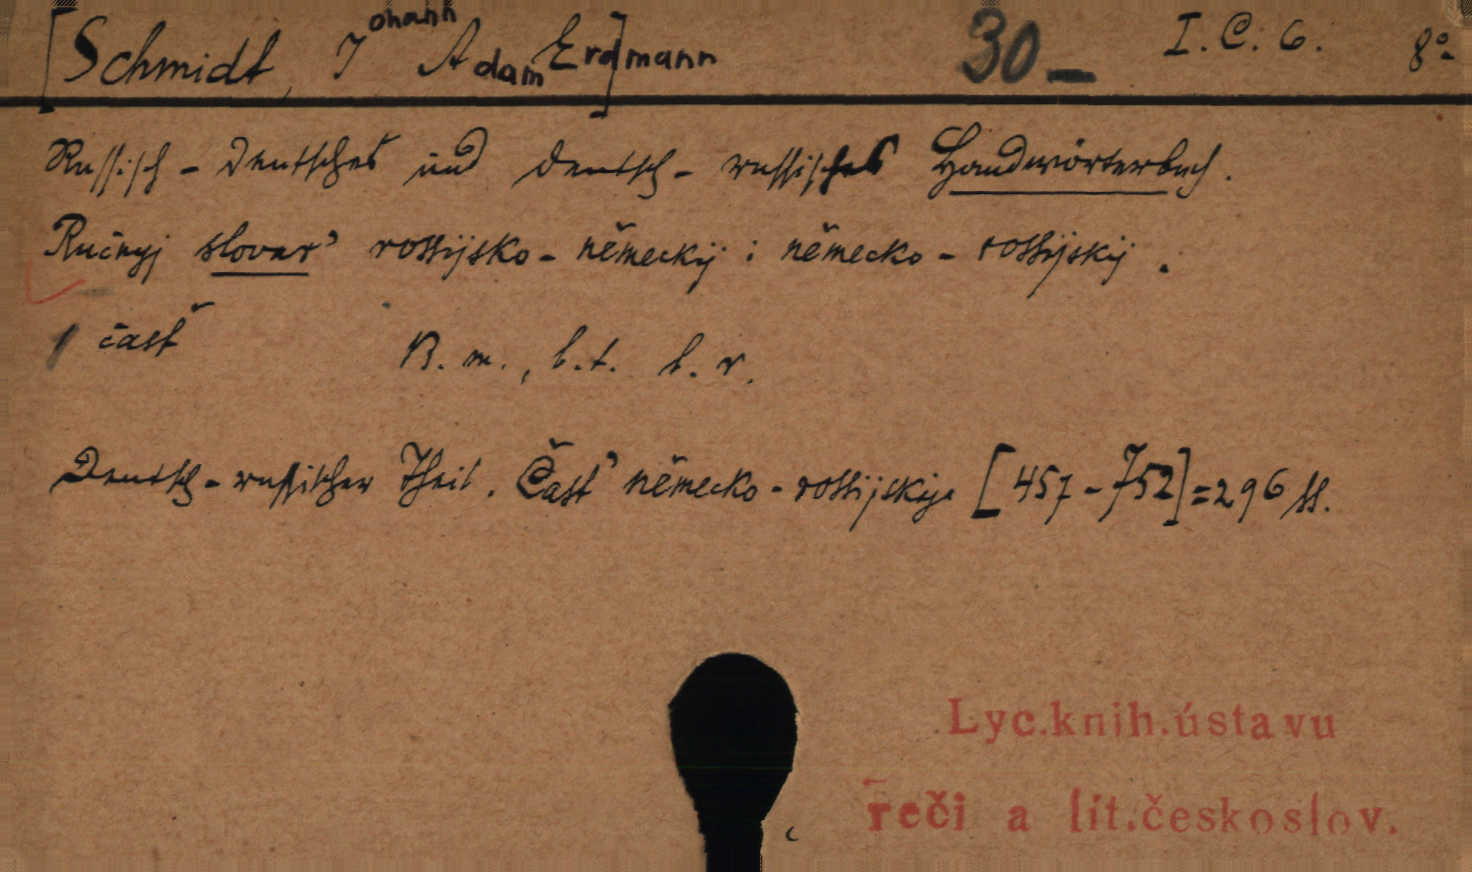 [Schmidt, Johann Adam Erdmann] 30— I. C. 6. 8°
Russisch-Deutsches und Deutsch-russisches Handwörterbuch.
Ručnyj slovar' rossijsko-německij i německo-rossijskij.
1 časť B. m., b. t. b. r.
Deutsch-russischer Theil. Časť německo-rossijskija [457-752]=296 ss.
Lyc.knih.ústavu
řeči a lit.českoslov.